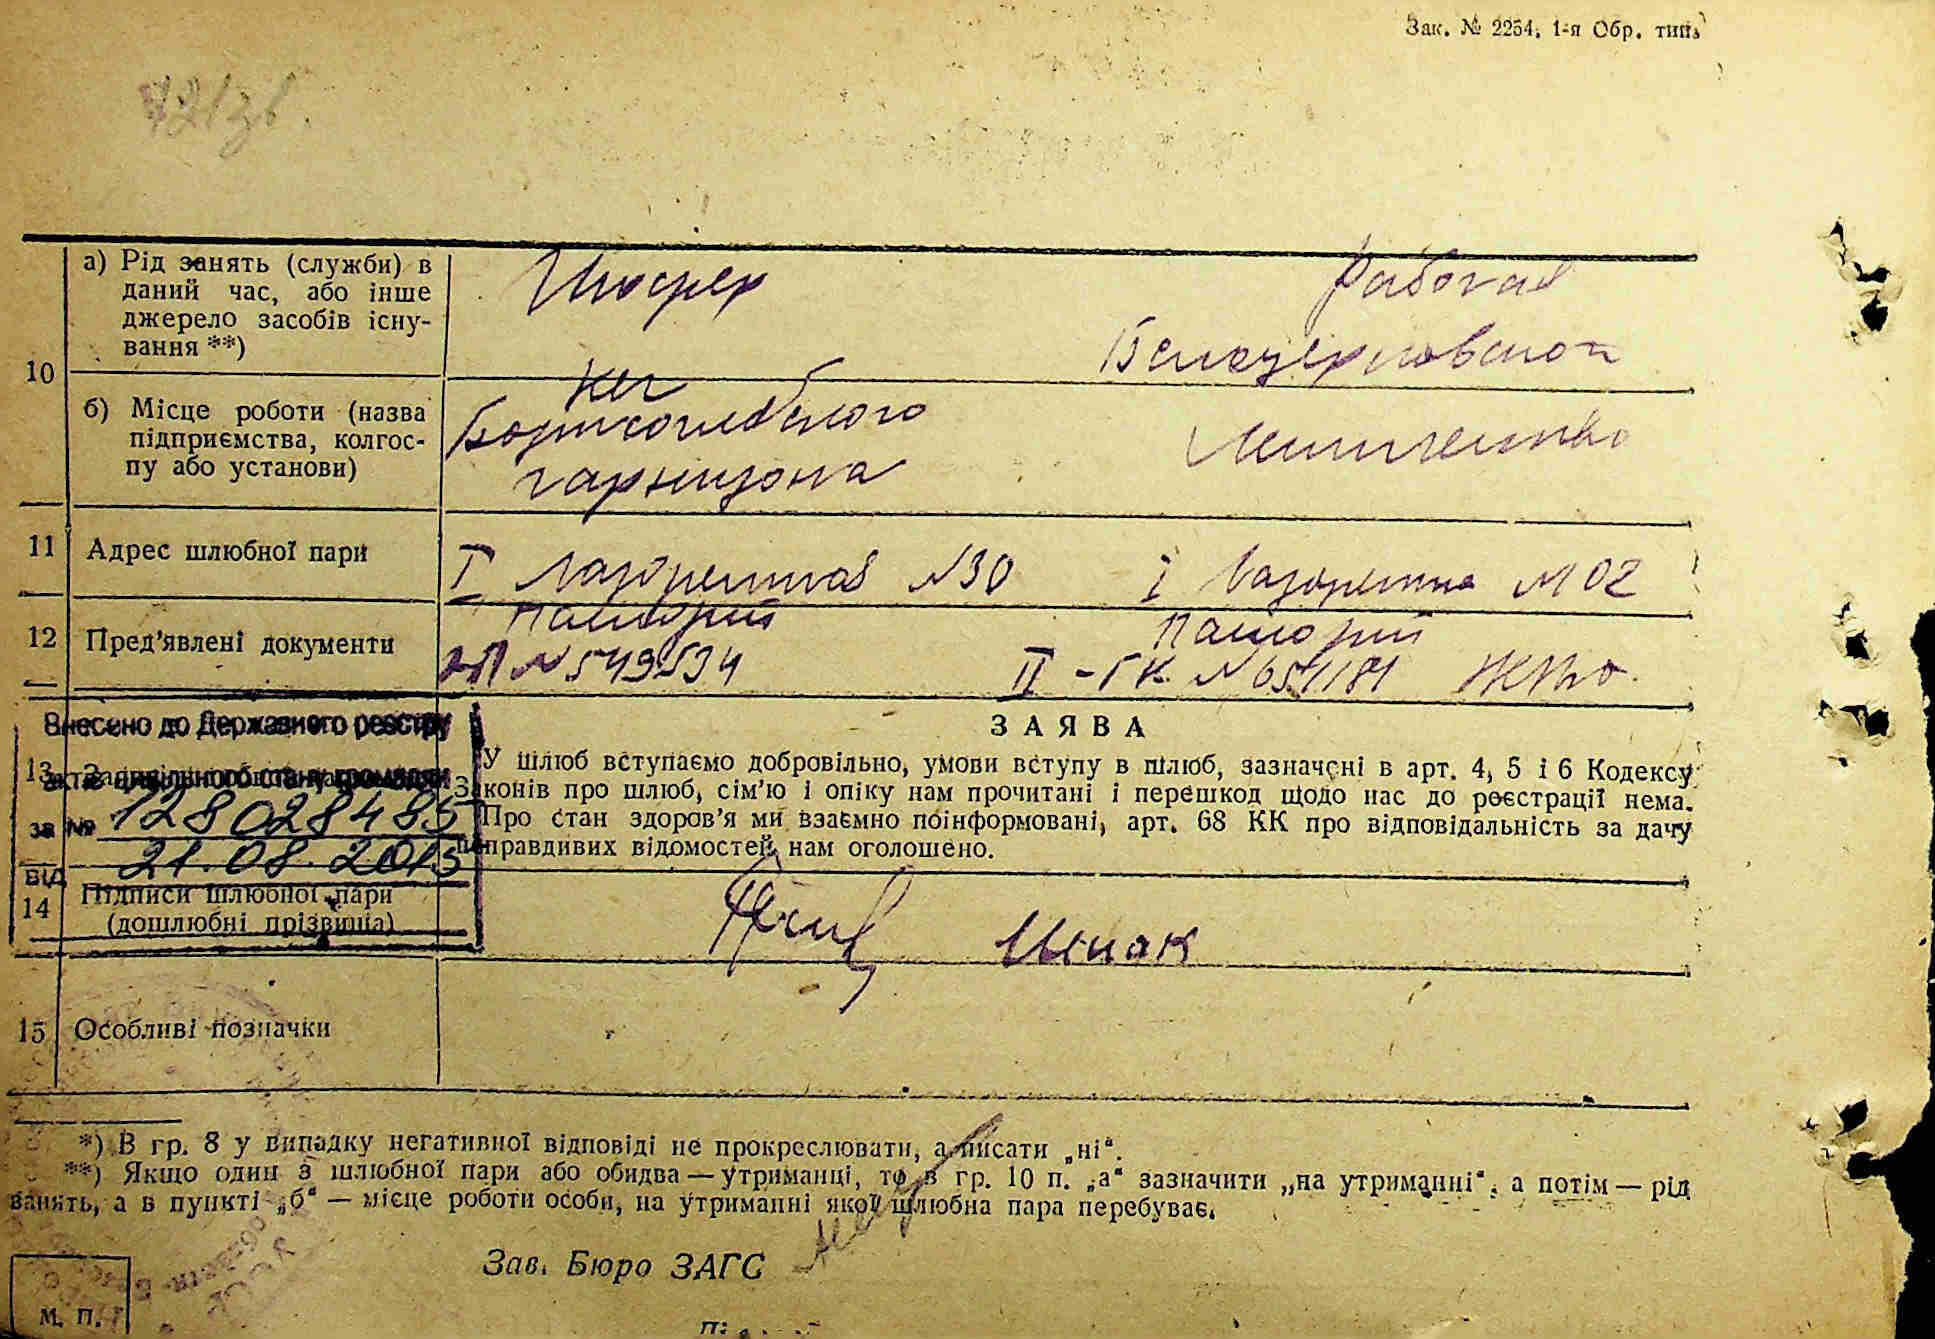 Зак. № 2254. 1-я Обр. тип.
10
а) Рід занять (служби) в
даний час, або інше
джерело засобів існу-
вання **)
Шофер
Рабочая
б) Місце роботи (назва
підприємства, колгос-
пу або установи)
КЕЧ
Борисоглебского
гарнизона
Белоцерковской
11
Адрес шлюбної пари
I Лазаретная №30
I Лазаретна
12
Пред'явлені документи
Пашпорт
№549534
Пашпорт
II-ГК №
Внесено до Державного реєстру
актів цивільного стану громадян
за № 128028485
від 21.08.2015
13
ЗАЯВА
У шлюб вступаємо добровільно, умови вступу в шлюб, зазначені в арт. 4, 5 і 6 Кодексу
Законів про шлюб, сім'ю і опіку нам прочитані і перешкод щодо нас до реєстрації нема.
Про стан здоров'я ми взаємно поінформовані, арт. 68 КК про відповідальність за дачу
неправдивих відомостей нам оголошено.
14
Підписи шлюбної пари
(дошлюбні прізвища)
Шпак
15
Особливі позначки
*) В гр. 8 у випадку негативної відповіді не прокреслювати, а писати „ні“.
**) Якщо один з шлюбної пари або обидва — утриманці, то в гр. 10 п. „а“ зазначити „на утриманні“, а потім — рід
занять, а в пункті „б“ — місце роботи особи, на утриманні якої шлюбна пара перебуває.
Зав. Бюро ЗАГС
М. П.